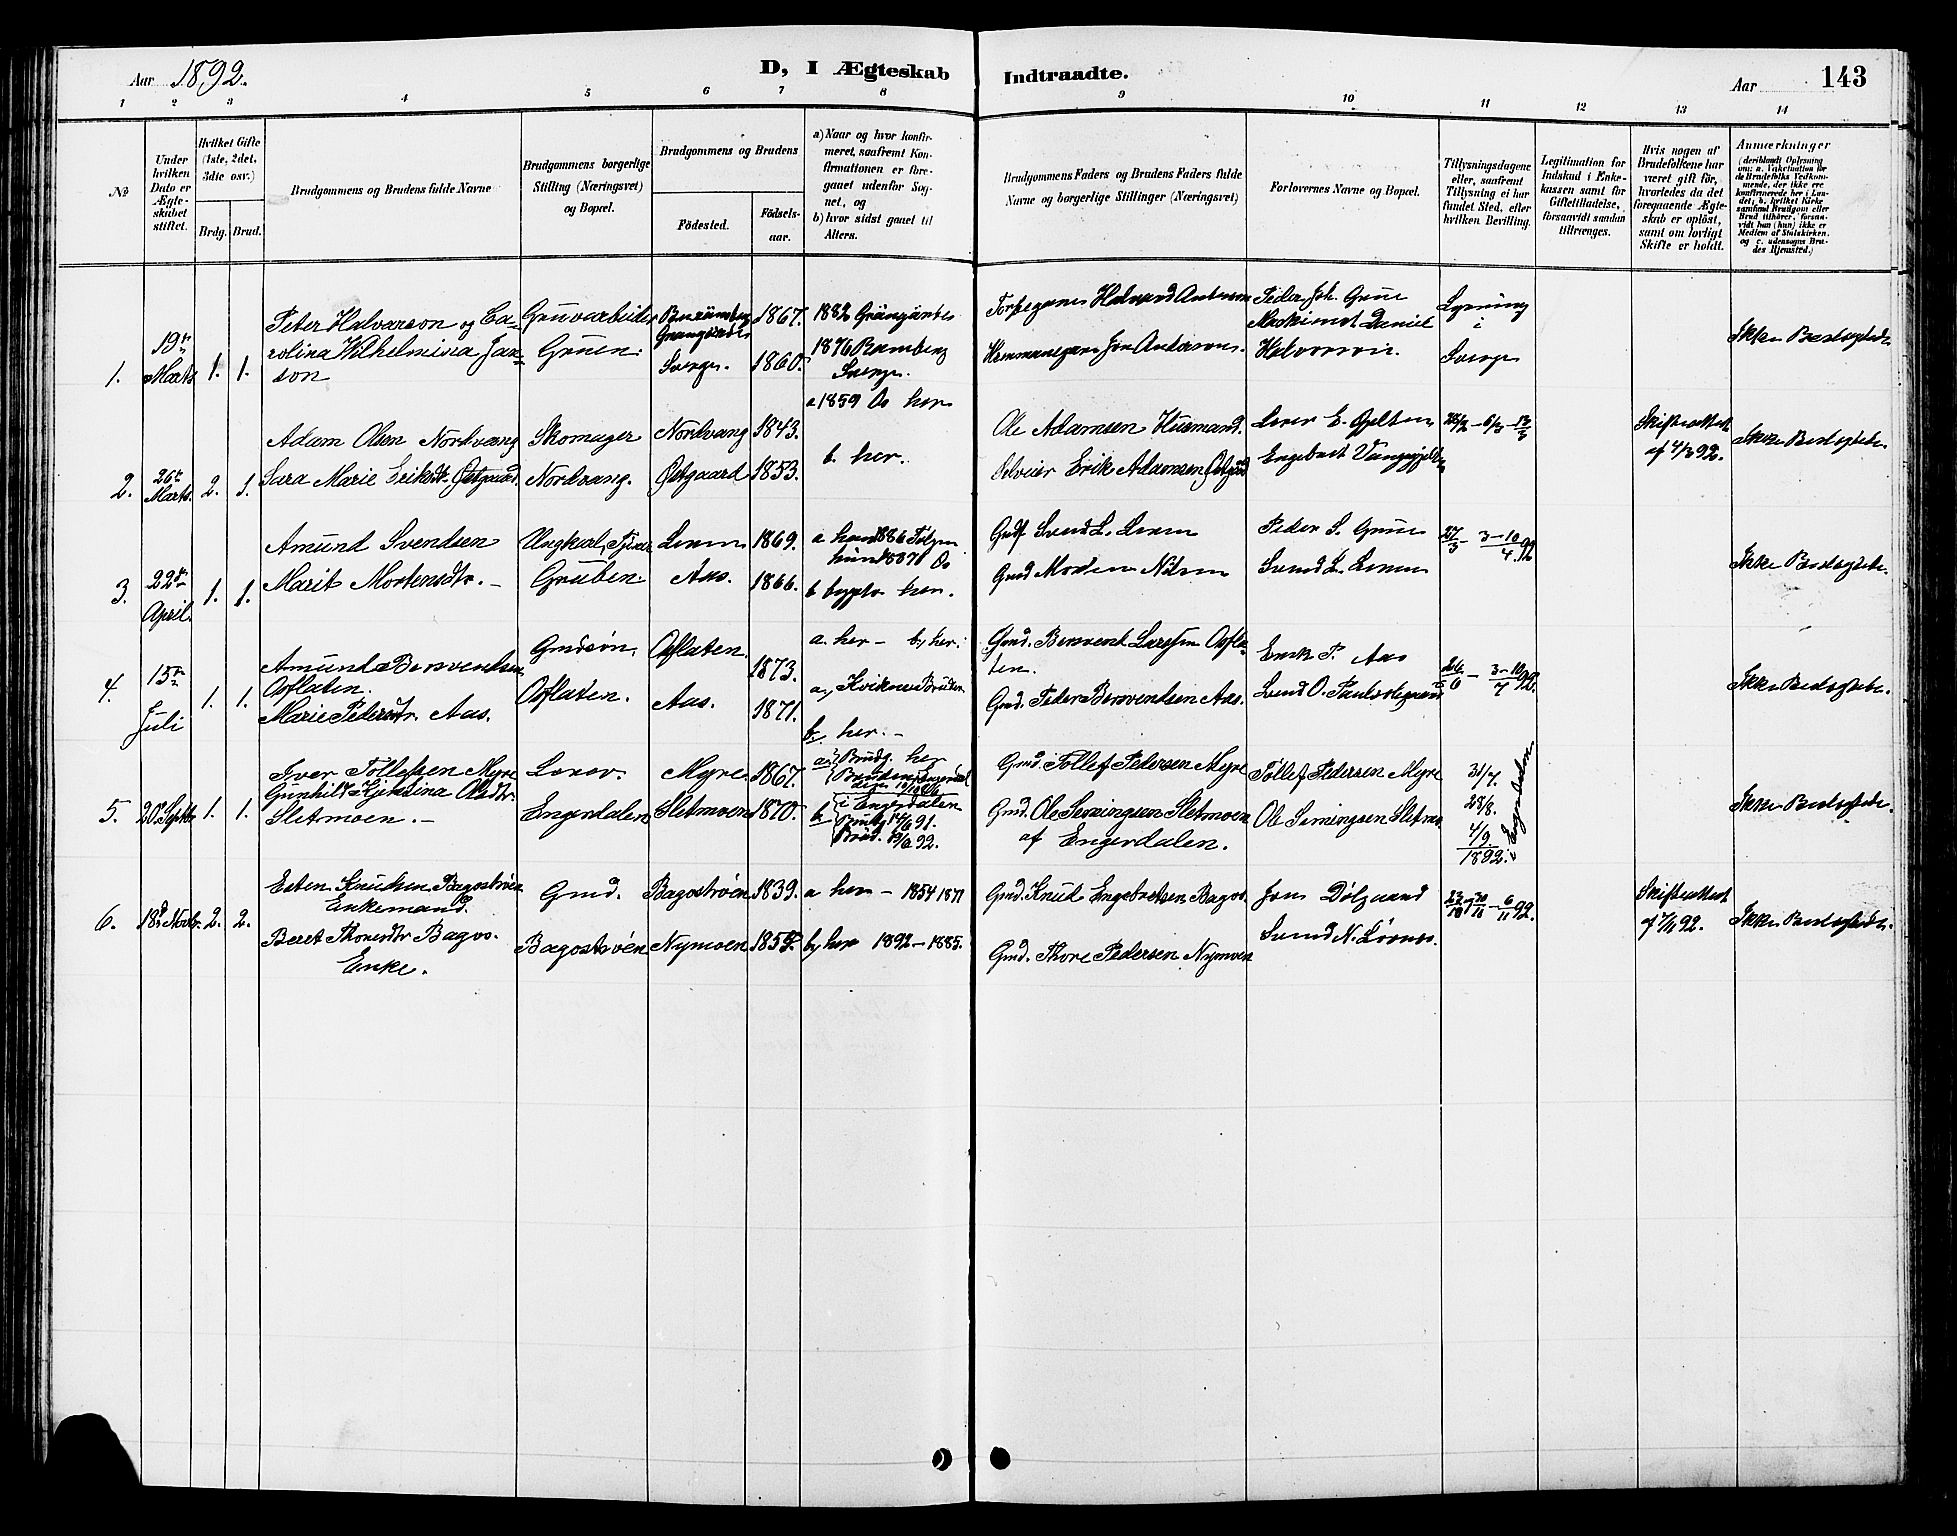 Aar 1892.
D, I Ægteskab
Indtraadte.
Aar
143
1 2 3 4 5 6 7 8 9 10 11 12 13 14
No
Under hvilken Dato er Ægteskabet stiftet.
Hvilket Gifte (1ste, 2det, 3die osv.)
Brdg. Brud.
Brudgommens og Brudens fulde Navne
Brudgommens borgerlige Stilling (Næringsvei) og Bopæl.
Brudgommens og Brudens
Fødested.
Fødselsaar.
a) Naar og hvor konfirmeret, saafremt Konfirmationen er foregaaet udenfor Sognet, og
b) hvor sidst gaaet til Alters.
Brudgommens Faders og Brudens Faders fulde Navne og borgerlige Stillinger (Næringsvei)
Forlovernes Navne og Bopæl.
Tillysningsdagene eller, saafremt Tillysning ei har fundet Sted, efter hvilken Bevilling.
Legitimation for Indskud i Enkekassen samt for Giftetilladelse, forsaavidt saadan tiltrænges.
Hvis nogen af Brudefolkene har været gift før, hvorledes da det foregaaende Ægteskab er opløst, samt om lovligt Skifte er holdt.
Anmærkninger
(deriblandt Oplysning om: a. Vakcination for de Brudefolks Vedkommende, der ikke ere konfirmerede her i Landet; b. hvilket Kirkesamfund Brudgom eller Brud tilhører, forsaavidt han (hun) ikke er Medlem af Statskirken, og c. udensogns Brudes Hjemsted.)
1. 19de Marts 1. 1.
Peter Halvarson og Carolina Wilhelmina Janson
Gruvarbeider Gruen.
Grangärde Sverige.
1867. 1860.
1882 Grängärde
1876 Ramberg Sverige.
Halvard Anderson
Jan Anderson.
Peder Joh. Grue
Maskinist Daniel Halvorson.
Lysning i Sverige
Ikke Beslægtede
2. 26de Marts. 2. 1.
Adam Olsen Nordvang
Sara Marie Eriksdt. Østgaard
Skomager Nordvang.
Nordvang Østgaard
1843. 1853.
a 1859 Os her
b. her.
Ole Adamsen Husmand.
Erik Adamsen Østgård
Iver E. Gjelten
Engebret Vangsgjelten
28/2 - 6/3 - 13/3
Skifteattest af 4/3 92.
Ikke Beslægtede.
3. 22de April. 1. 1.
Amund Svendsen
Marit Mortensdtr. -
Ungkarl, Gruben.
Aas.
1869. 1866.
a han 1886 Tolgen
hun 1881 Os
b begge her.
Gmd Svend L.
Gmd Morten Nilsen
Peder S. Grue
Svend L.
27/3 - 3 - 10/4 92
Ikke Beslægtede.
4. 15de Juli 1. 1.
Amund Bersvendsen Osflaten.
Marie Pedersdtr. Aas.
Gmdsøn, Osflaten.
Osflaten. Aas.
1873. 1871.
a. her - b, her.
a, Kvikne Bruden
b. her. -
Gmd. Bersvend Larssen Osflaten.
Gmd. Peder Bersvendsen Aas.
Enok P. Aas
Svend O. Paulsdegaard
26/6 - 3-10/7 92.
Ikke Beslægtede.
5. 20 Septbr 1. 1.
Iver Tollefsen Myre
Gunhild Kjerstina Olsdtr. Sletmoen. -
Engerdalen
Myre. Sletmoen
1867. 1870.
a Brudg. her
Bruden i Engerdal
b i Engerdalen
Brudg 14/6 91.
Brud. 19/6 92.
Gmd. Tollef Pedersen Myre
Gmd. Ole Simingsen Sletmoen
af Engerdalen.
Tollef Pedersen Myre
Ole Simingsen Sletmo
31/7. 28/8. 4/9 1892. i Engerdalen
Ikke Beslægtede.
6. 18de Novbr. 2. 2.
Esten Knudsen Bagostrøen
Enkemand. og
Beret Thoresdtr Bagos.
Enke.
Gmd. Bagostrøen
Bagostrøen Nymoen
1839. 1852.
a her - 1854 1871
b, her 1892 - 1885.
Gmd. Knud Engebretsen Bagos.
Gmd. Thore Pedersen Nymoen
Jons Dølgaard
Svend N.
23/10 30/10 - 6/11 92.
Skifteattest af 7/11 92.
Ikke Beslægtede.